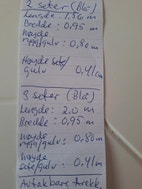 2 seter (Blå)
Lengde: 1,56 m
Bredde: 0,95 m
Høyde
rygg/gulv: 0,80 m
Høyde sete/
gulv : 0,41 m
3 seter (Blå)
Lengde: 2.0 m
Bredde: 0,95 m
Høyde
rygg/gulv: 0,80 m
Høyde
sete/gulv: 0.41 m
Avtakbare trekk